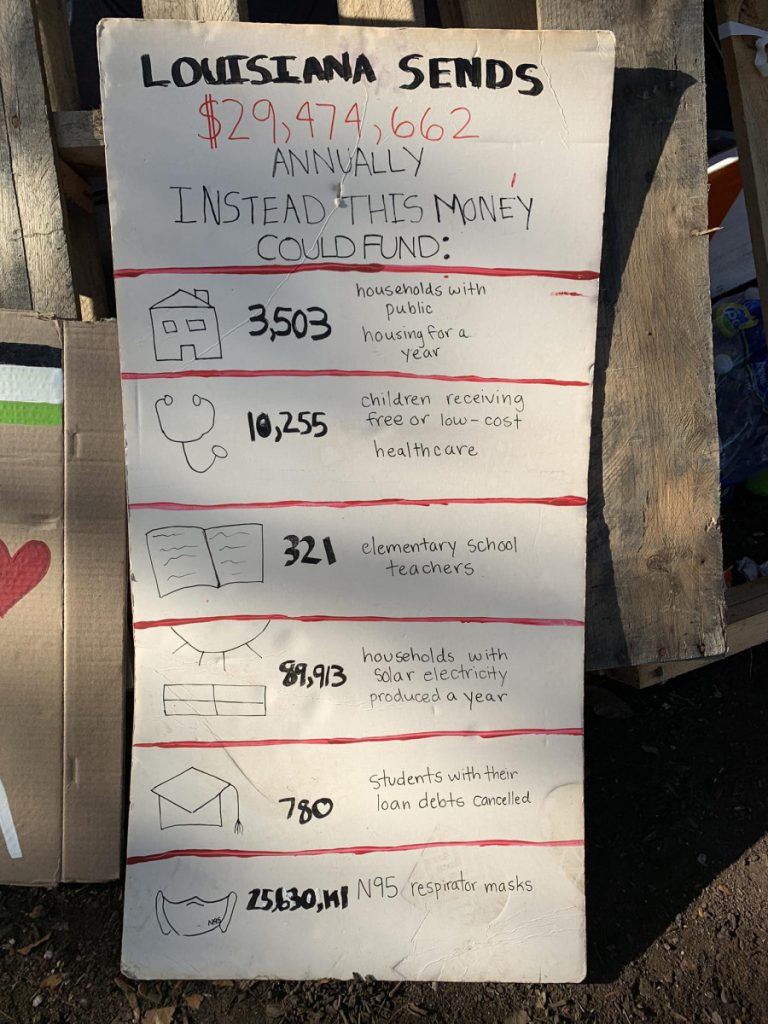 LOUISIANA SENDS
$29,474,662
ANNUALLY
INSTEAD THIS MONEY
COULD FUND:
3,503 households with
public
housing for a
year
10,255 children receiving
free or low-cost
healthcare
321 elementary school
teachers
89,913 households with
solar electricity
produced a year
780 students with their
loan debts cancelled
N95 respirator masks
N95